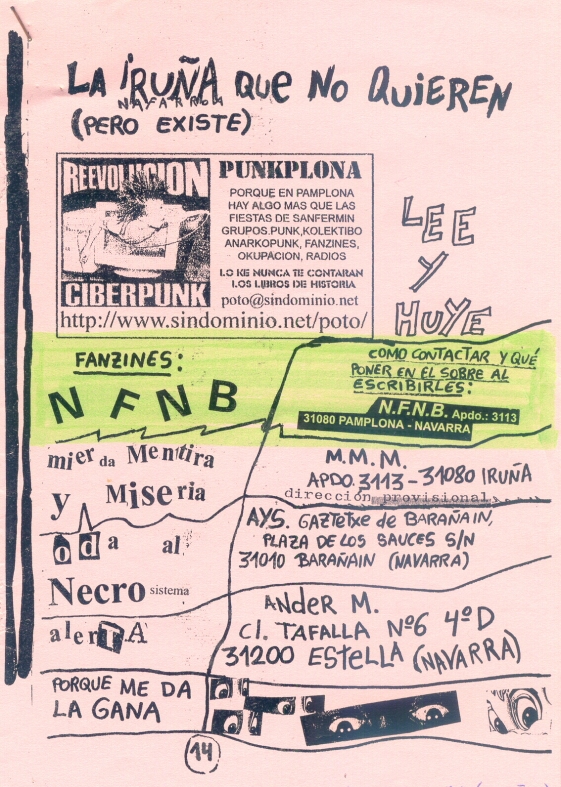 LA IRUÑA QUE NO QUIEREN
NAFARROA
(PERO EXISTE)
REEVOLUCION
CIBERPUNK
PUNKPLONA
PORQUE EN PAMPLONA
HAY ALGO MAS QUE LAS
FIESTAS DE SANFERMIN
GRUPOS.PUNK,KOLEKTIBO
ANARKOPUNK, FANZINES,
OKUPACION, RADIOS
LO KE NUNCA TE CONTARAN
LOS LIBROS DE HISTORIA
poto@sindominio.net
http://www.sindominio.net/poto/
LEE
Y
HUYE
FANZINES:
NFNB
COMO CONTACTAR Y QUÉ
PONER EN EL SOBRE AL
ESCRIBIRLES:
N.F.N.B. Apdo.: 3113
31080 PAMPLONA - NAVARRA
mierda Mentira
y Miseria
M.M.M.
APDO. 3113-31080 IRUÑA
dirección provisional
oda al
Necro sistema
AYS. GAZTETXE de BARAÑAIN,
PLAZA DE LOS SAUCES S/N
31010 BARAÑAIN (NAVARRA)
alerTA
ANDER M.
Cl. TAFALLA Nº6 4ºD
31200 ESTELLA (NAVARRA)
PORQUE ME DA
LA GANA
14